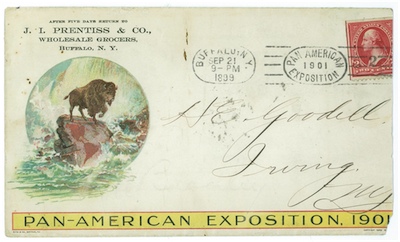 AFTER FIVE DAYS RETURN TO
J. I. PRENTISS & CO.,
WHOLESALE GROCERS,
BUFFALO, N. Y.
BUFFALO, N.Y.
SEP 21
9-PM
1899
PAN AMERICAN
1901
EXPOSITION
2
Goodell
Irving
N.Y.
PAN-AMERICAN EXPOSITION, 1901